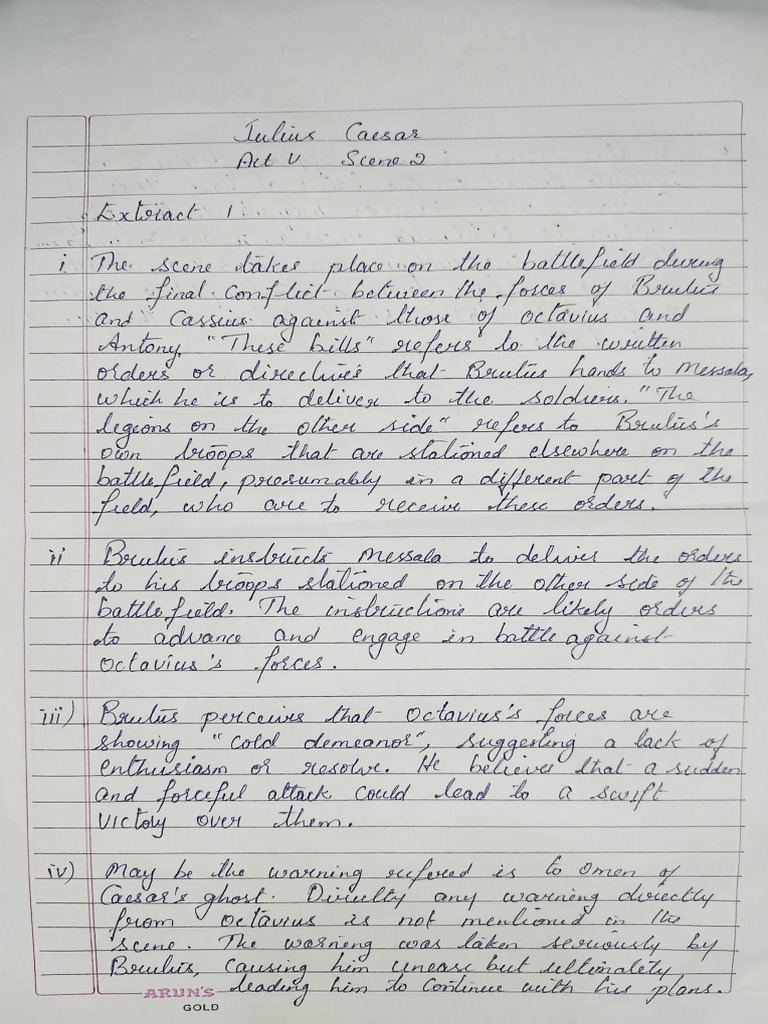 Julius Caesar
Act V Scene 2
Extract 1.
i The scene takes place on the battlefield during
the final conflict between the forces of Brutus
and Cassius against those of Octavius and
Antony. "These bills" refers to the written
orders or directives that Brutus hands to Messala,
which he is to deliver to the soldiers. "The
legions on the other side" refers to Brutus's
own troops that are stationed elsewhere on the
battlefield, presumably in a different part of the
field, who are to receive these orders.
ii Brutus instructs Messala to deliver the orders
to his troops stationed on the other side of the
battlefield. The instructions are likely orders
to advance and engage in battle against
Octavius's forces.
iii) Brutus perceives that Octavius's forces are
showing "cold demeanor", suggesting a lack of
enthusiasm or resolve. He believes that a sudden
and forceful attack could lead to a swift
victory over them.
iv) May be the warning refered is to omen of
Caesar's ghost. Directly any warning directly
from Octavius is not mentioned in the
scene. The warning was taken seriously by
Brutus, causing him unease but ultimately
leading him to continue with his plans.
ARUN'S
GOLD